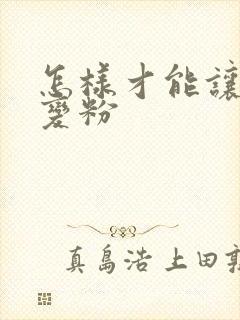 怎樣才能讓
變粉
真島浩 上田敦